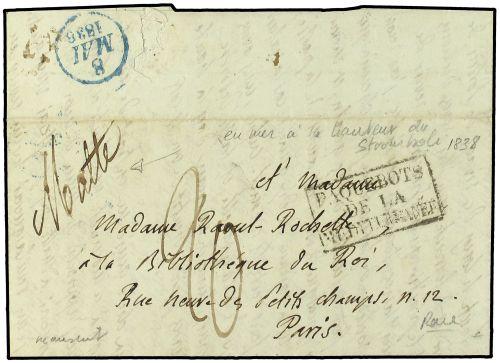 8
MAI
1838
Malte
en mer à la hauteur du
Stromboli 1838
PAQUEBOTS
DE LA
MÉDITERRANÉE
20
A Madame
Madame Raoul-Rochette,
à la Bibliothèque du Roi,
Rue neuve des Petits champs, n. 12.
Paris.
manuscrit
Rare